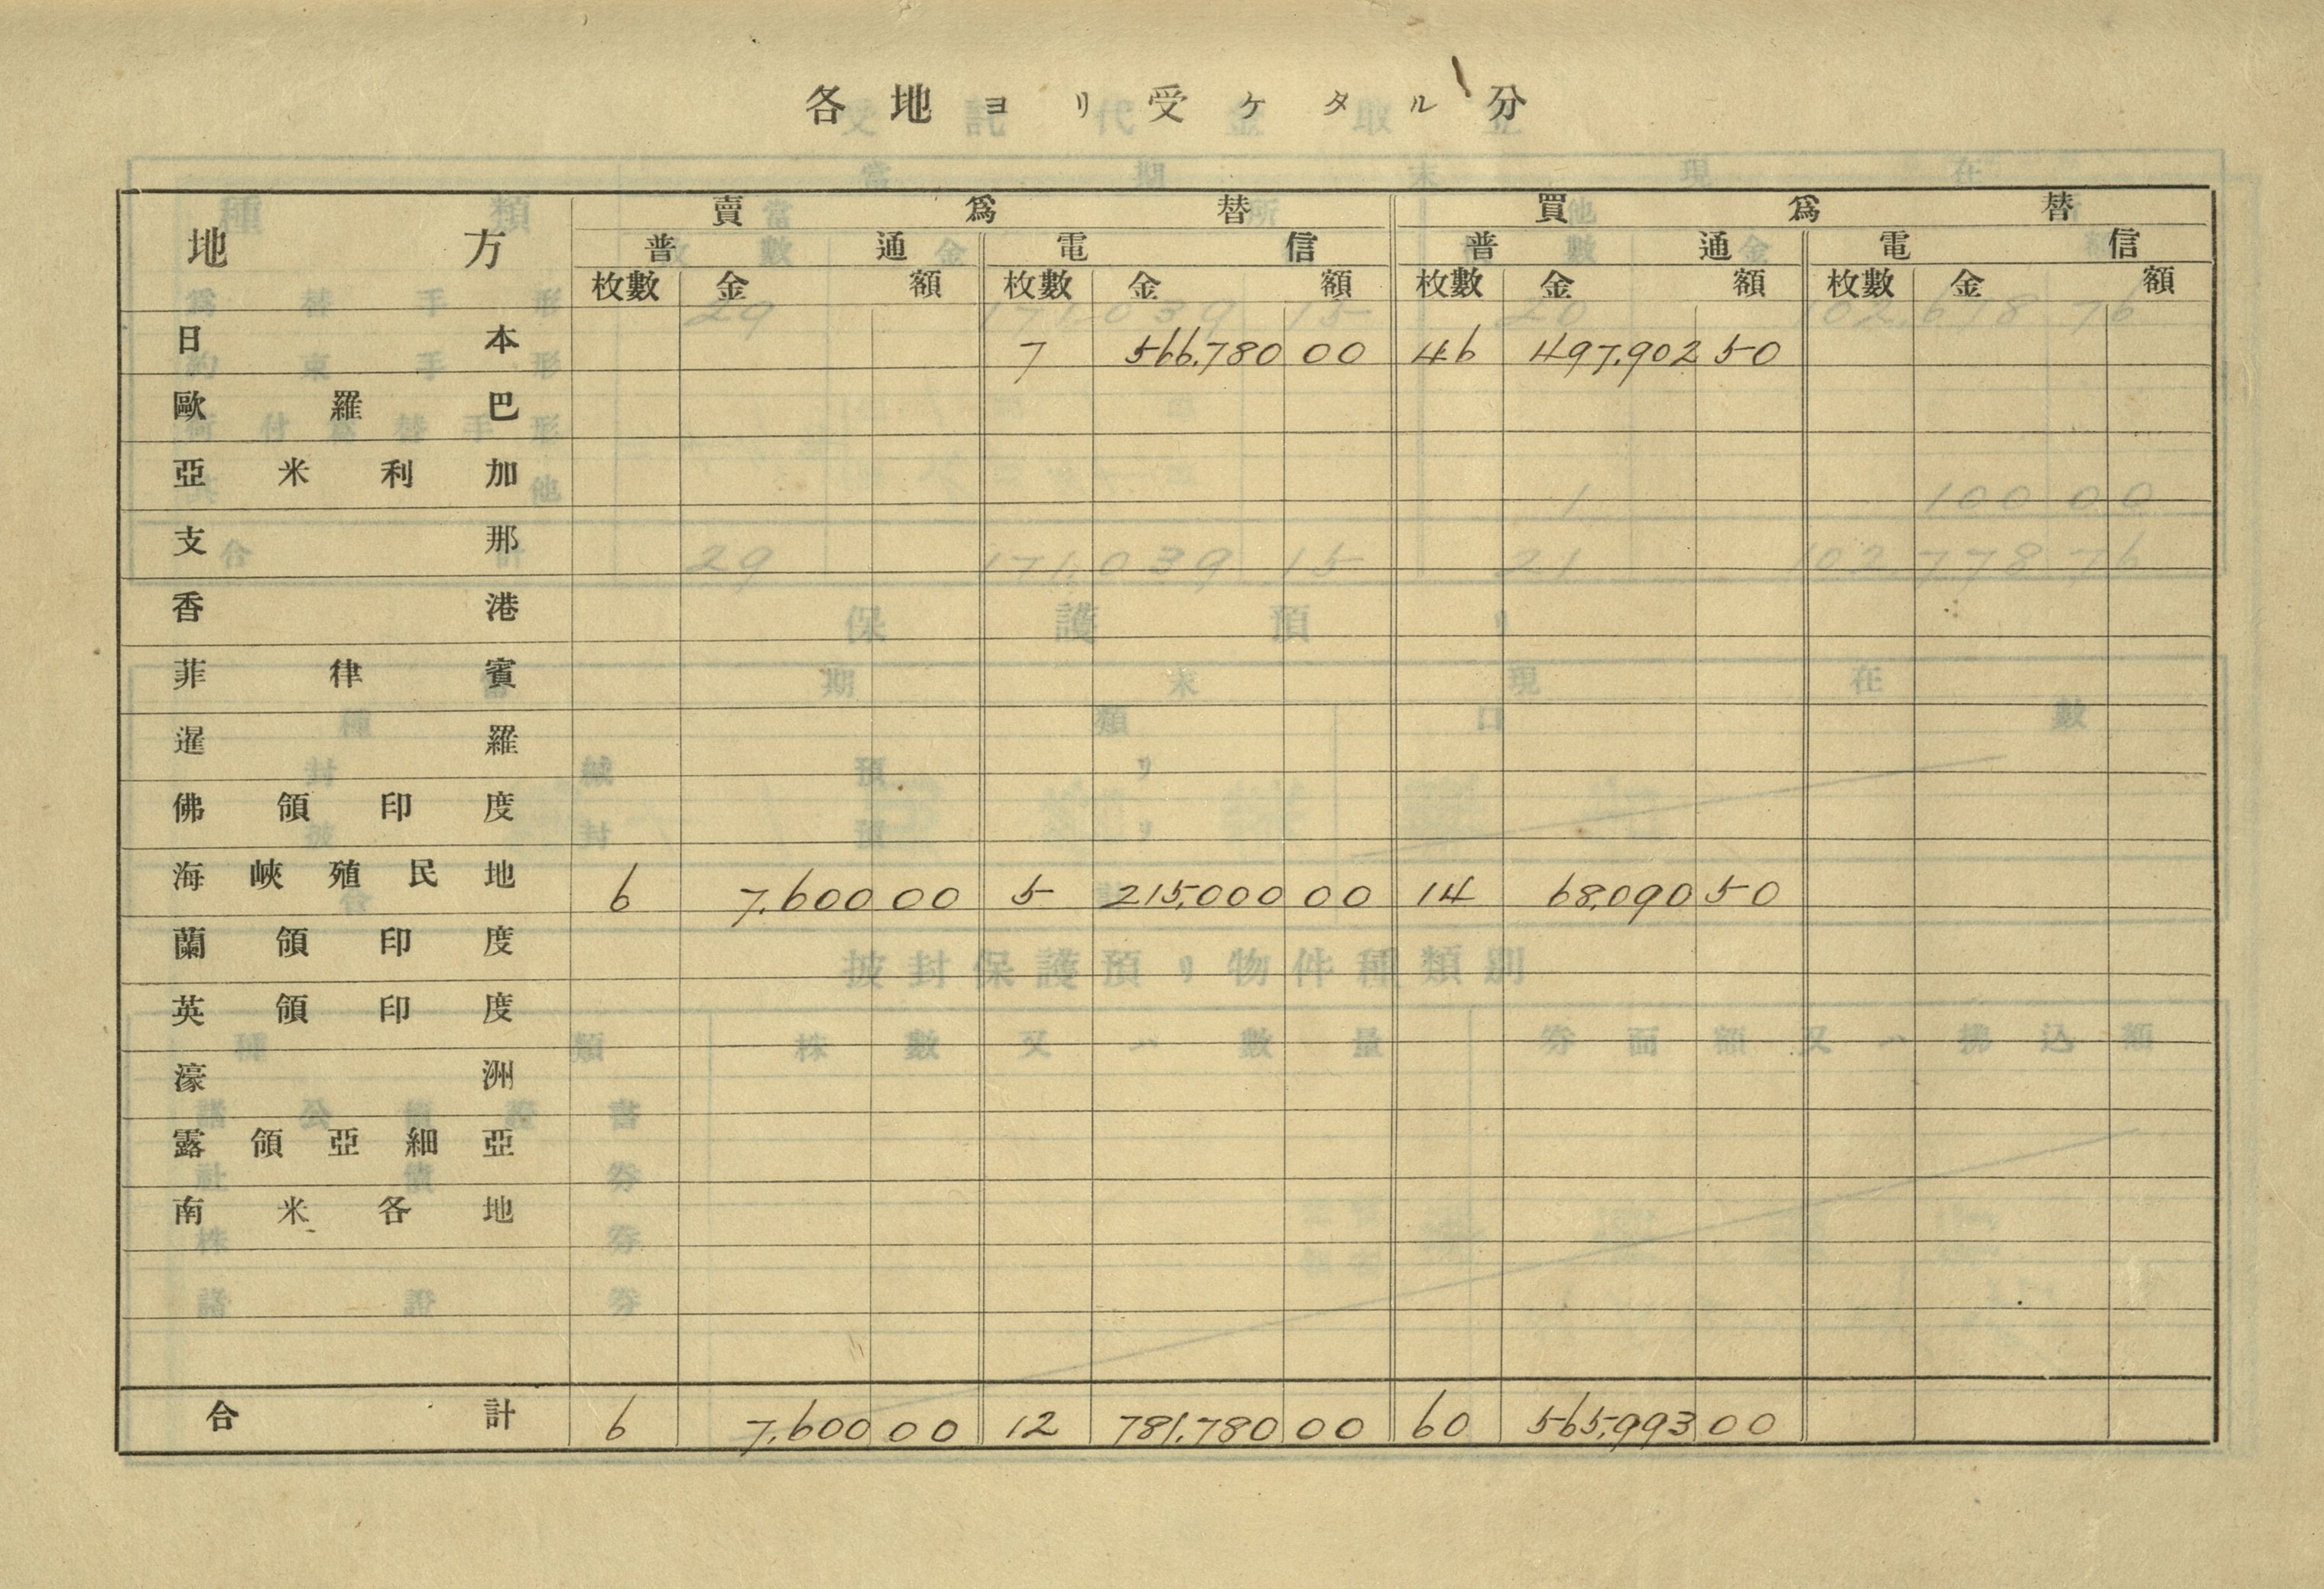 各地ヨリ受ケタル分
地方 賣爲替 買爲替
普通 電信 普通 電信
枚數 金額 枚數 金額 枚數 金額 枚數 金額
日本 7 566,780 00 46 497,902 50
歐羅巴
亞米利加
支那
香港
菲律賓
暹羅
佛領印度
海峽殖民地 6 7,600 00 5 215,000 00 14 68,090 50
蘭領印度
英領印度
濠洲
露領亞細亞
南米各地
合計 6 7,600 00 12 781,780 00 60 565,993 00